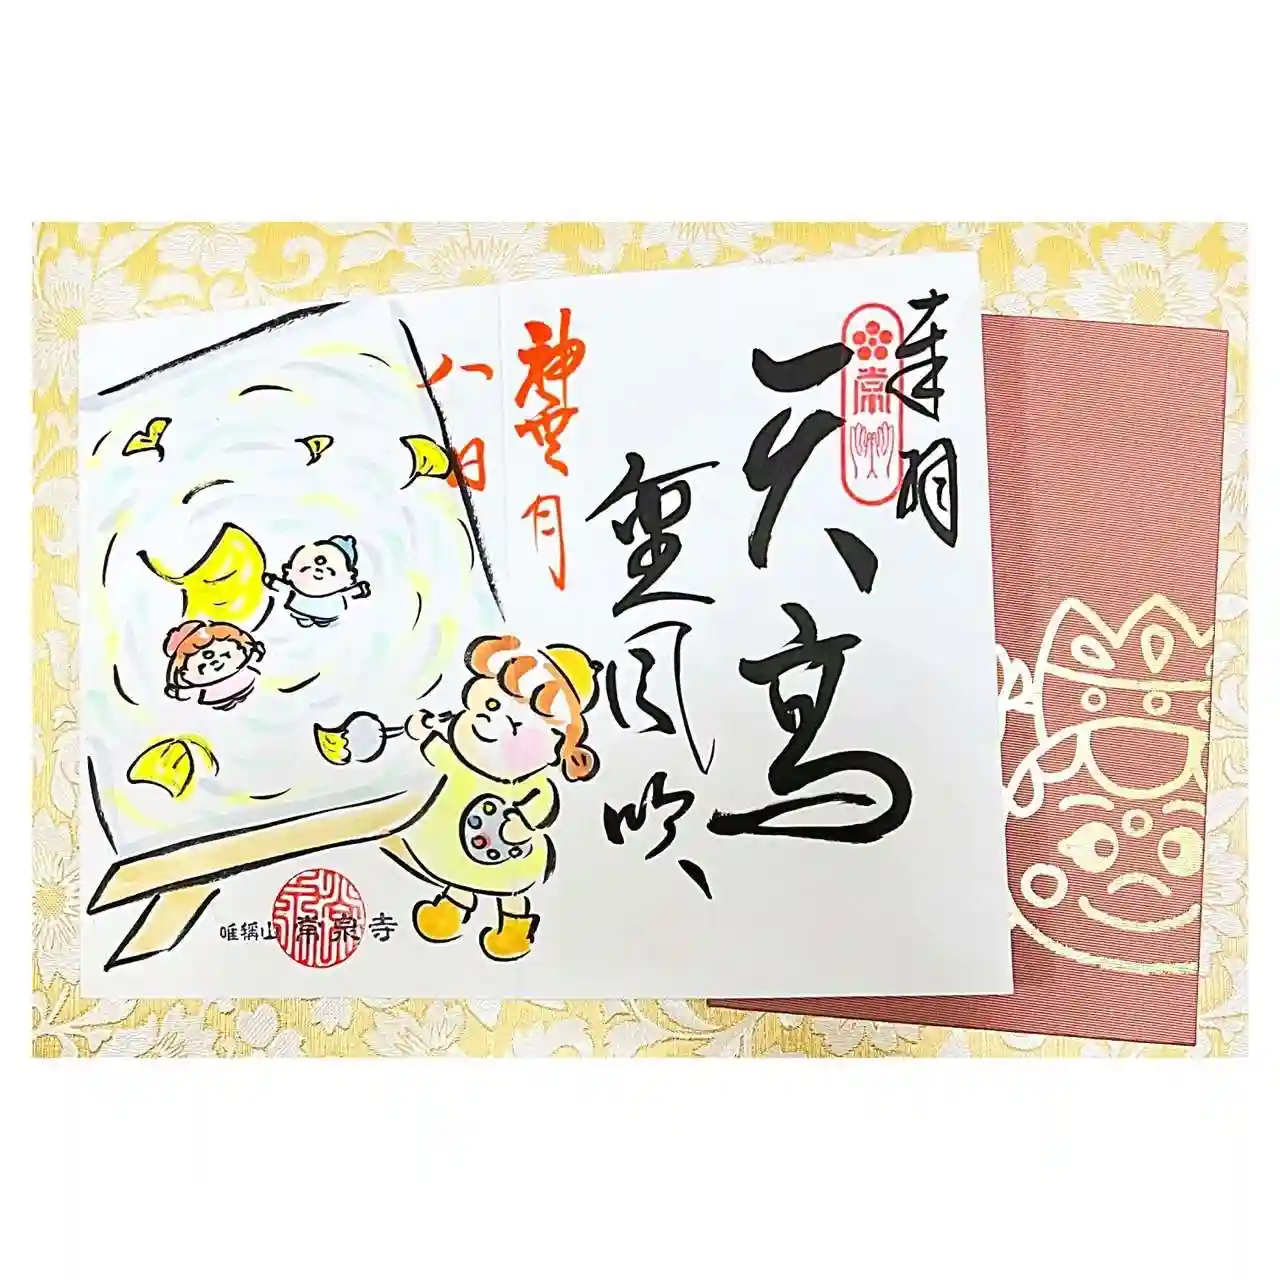 奉拝
天高
聖風吹
神無月
八日
常
唯稱山 常泉寺